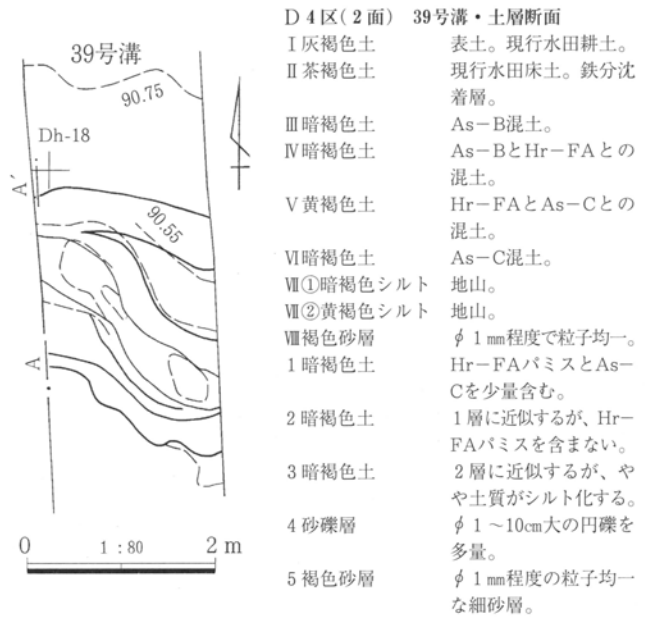 39号溝
90.75
Dh-18
A′
90.55
A
0 1：80 2 m
D 4区(2面) 39号溝・土層断面
Ⅰ灰褐色土 表土。現行水田耕土。
Ⅱ茶褐色土 現行水田床土。鉄分沈
着層。
Ⅲ暗褐色土 As－B混土。
Ⅳ暗褐色土 As－BとHr－FAとの
混土。
Ⅴ黄褐色土 Hr－FAとAs－Cとの
混土。
Ⅵ暗褐色土 As－C混土。
Ⅶ①暗褐色シルト 地山。
Ⅶ②黄褐色シルト 地山。
Ⅷ褐色砂層 φ1㎜程度で粒子均一。
1暗褐色土 Hr－FAパミスとAs－
Cを少量含む。
2暗褐色土 1層に近似するが、Hr－
FAパミスを含まない。
3暗褐色土 2層に近似するが、や
や土質がシルト化する。
4砂礫層 φ1～10㎝大の円礫を
多量。
5褐色砂層 φ1㎜程度の粒子均一
な細砂層。